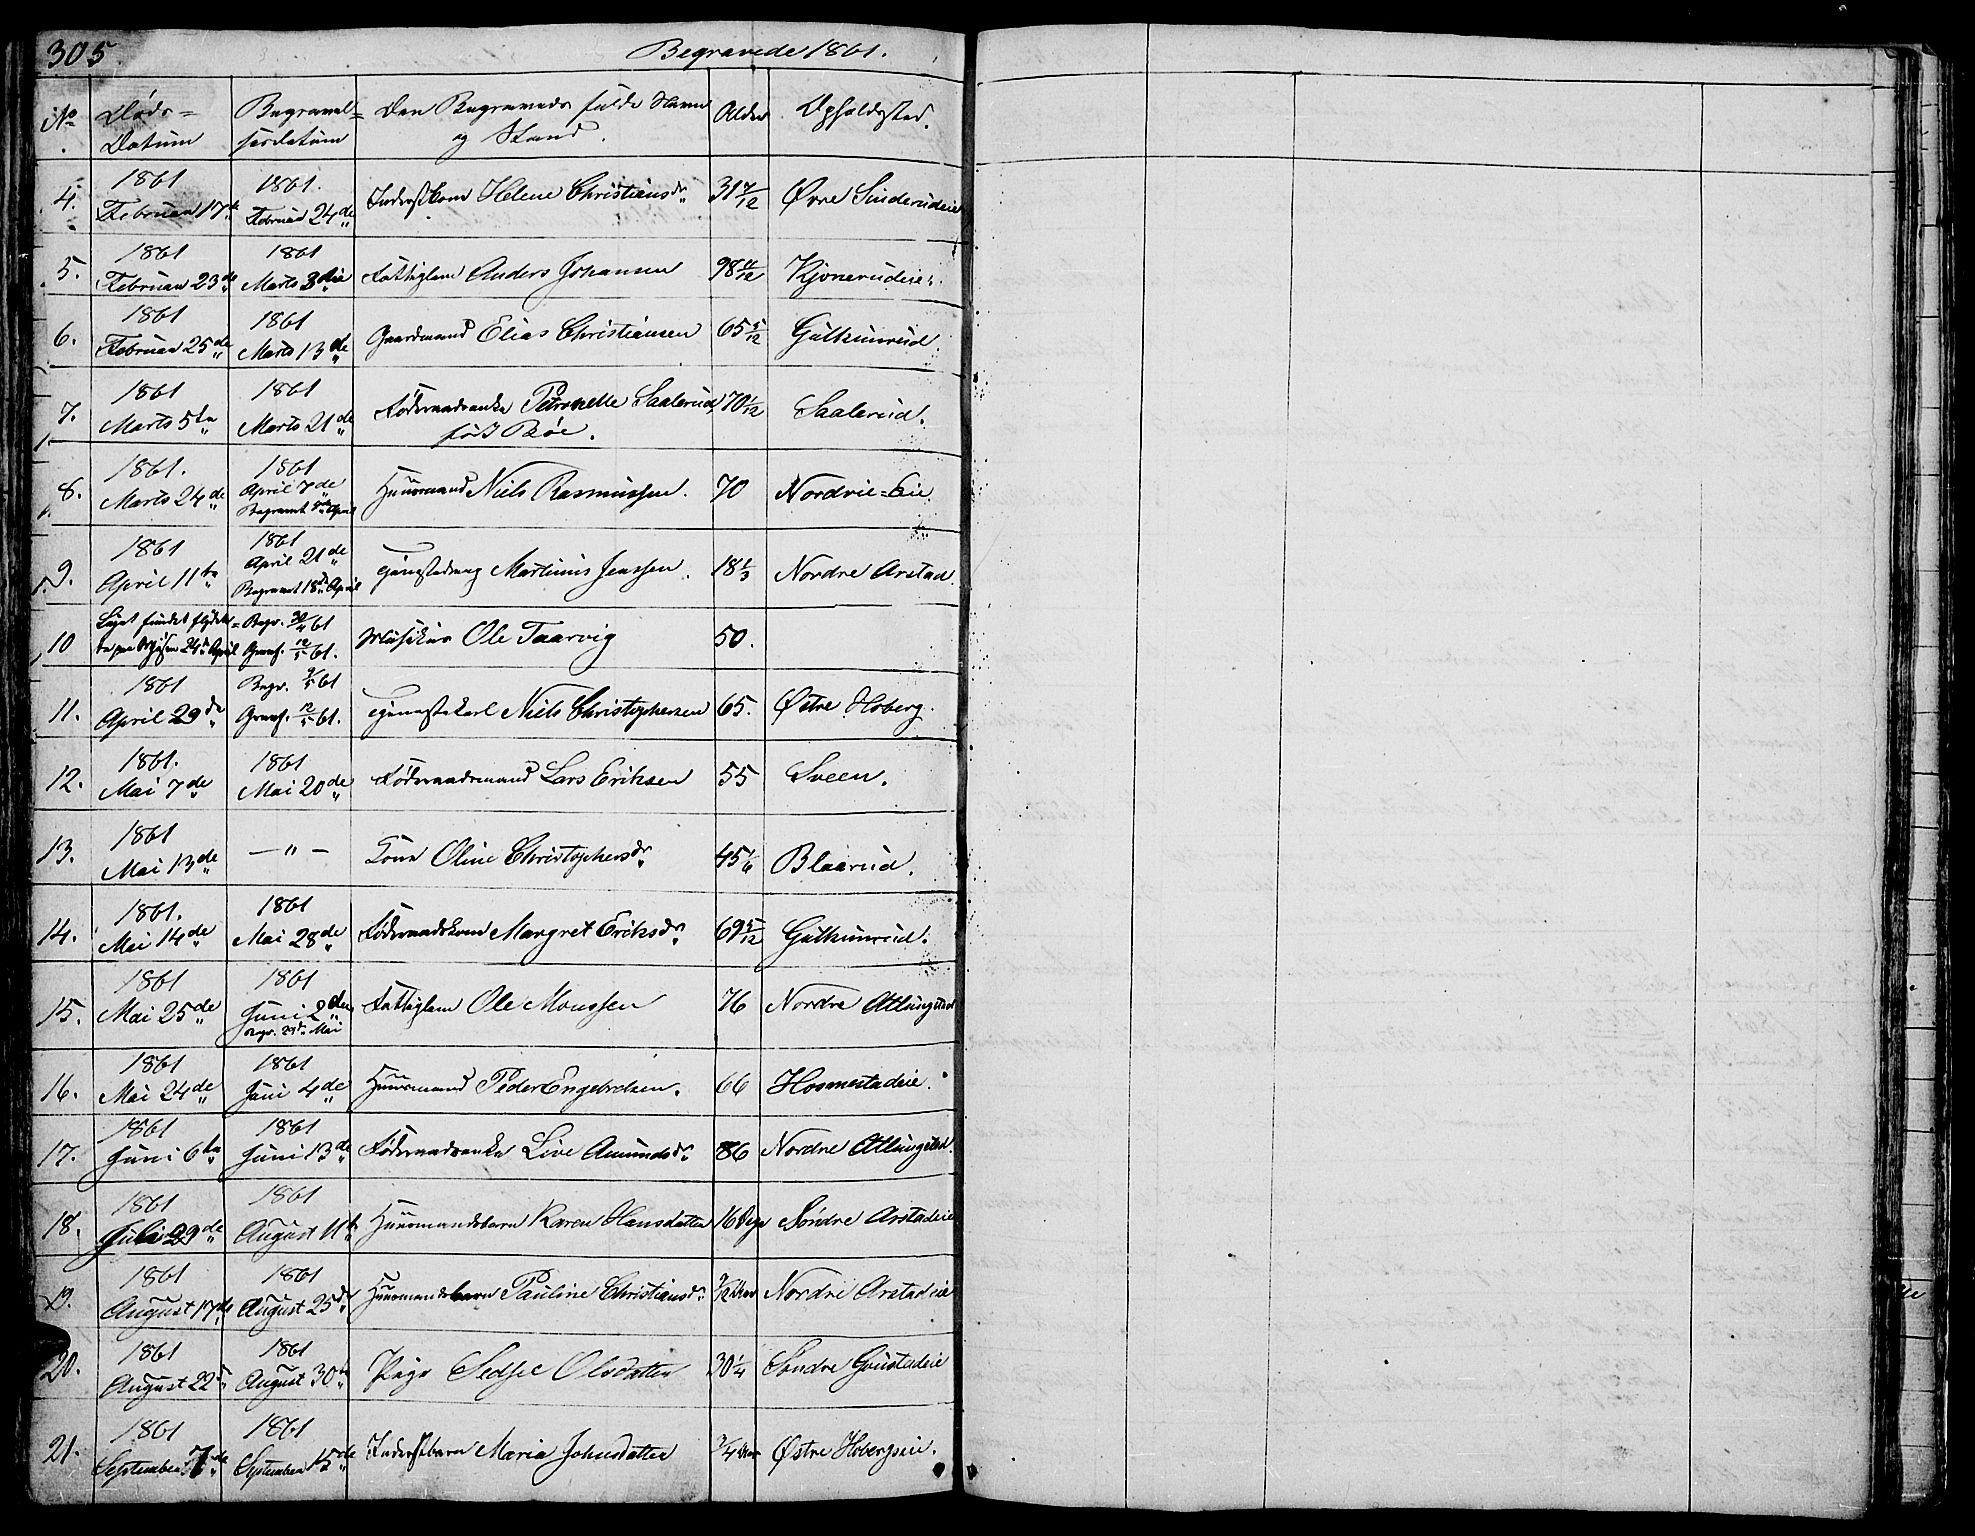 305
Begravede 1861.
No. Døds=Datum Begravelsesdatum Den Begravedes fulde Navn og Stand. Alder Opholdssted.
4. 1861 Februar 17de 1861. Februar 24de Inderstkone Helene Christiansdr. 31 Øvre Sinderudeie
5. 1861 Februar 23de 1861 Marts 3die Fattiglem Anders Johansen 98 Kjønerudeie.
6. 1861 Februar 25de 1861 Marts 13de Gaardmand Elias Christiansen 65 5/12 Gulhuusrud
7. 1861 Marts 5te 1861 Marts 21de Føderaadsenke Petronelle Saalerud født Bøe. 70 1/12 Saalerud.
8. 1861. Marts 24de 1861 April 7de Begravet April Huusmand Niels Rasmussen. 70 Nordvie=Eie
9. 1861 April 11te 1861 April 21de Begravet 18de April Tjenestedreng Martinus Jenssen. 18 1/3 Nordre Arstad.
10 Liget fundet flydende paa Mjøsen 24de April Begr. 30/4 61 Grav. 12/5 61. Musikus Ole Taarvig 50.
11. 1861 April 29de Begr. 9/5 61 Grav. 12/5 61. Tjenestekarl Niels Christophersen 65. Østre Hoberg.
12. 1861. Mai 7de 1861 Mai 20de Føderaadsmand Lars Eriksen 55 Sveen.
13. 1861 Mai 13de — " — Kone Oline Christophersdr. 45 1/6 Blaarud.
14. 1861. Mai 14de 1861 Mai 28de Føderaadskone Margret Eriksdr. 69 5/12 Gulhuusrud.
15. 1861 Mai 25de 1861 Juni 2den Begr. 29de Mai Fattiglem Ole Monssen 76 Nordre Atlungstad
16. 1861 Mai 24de 1861 Juni 4de Huusmand Peder Engebretsen. 66 Hosmestadeie.
17. 1861 Juni 6te 1861 Juni 13de Føderaadsenke Live Amundsdr. 86 Nordre Atlungstad.
18. 1861 Juli 29de 1861 August 11te Huusmandsbarn Karen Hansdatter 16 Dage Søndre Arstadeie
19. 1861 August 17de 1861 August 25de Huusmandsbarn Pauline Christiansdr. Nordre Arstadeie
20. 1861 August 22de 1861 August 30te Pige Sedsel Olsdatter 30 1/4 Søndre Grustadeie
21. 1861 September 7de 1861 September 15de Inderstbarn Maria Johnsdatter 3/4 Aar Østre Hobergseie.